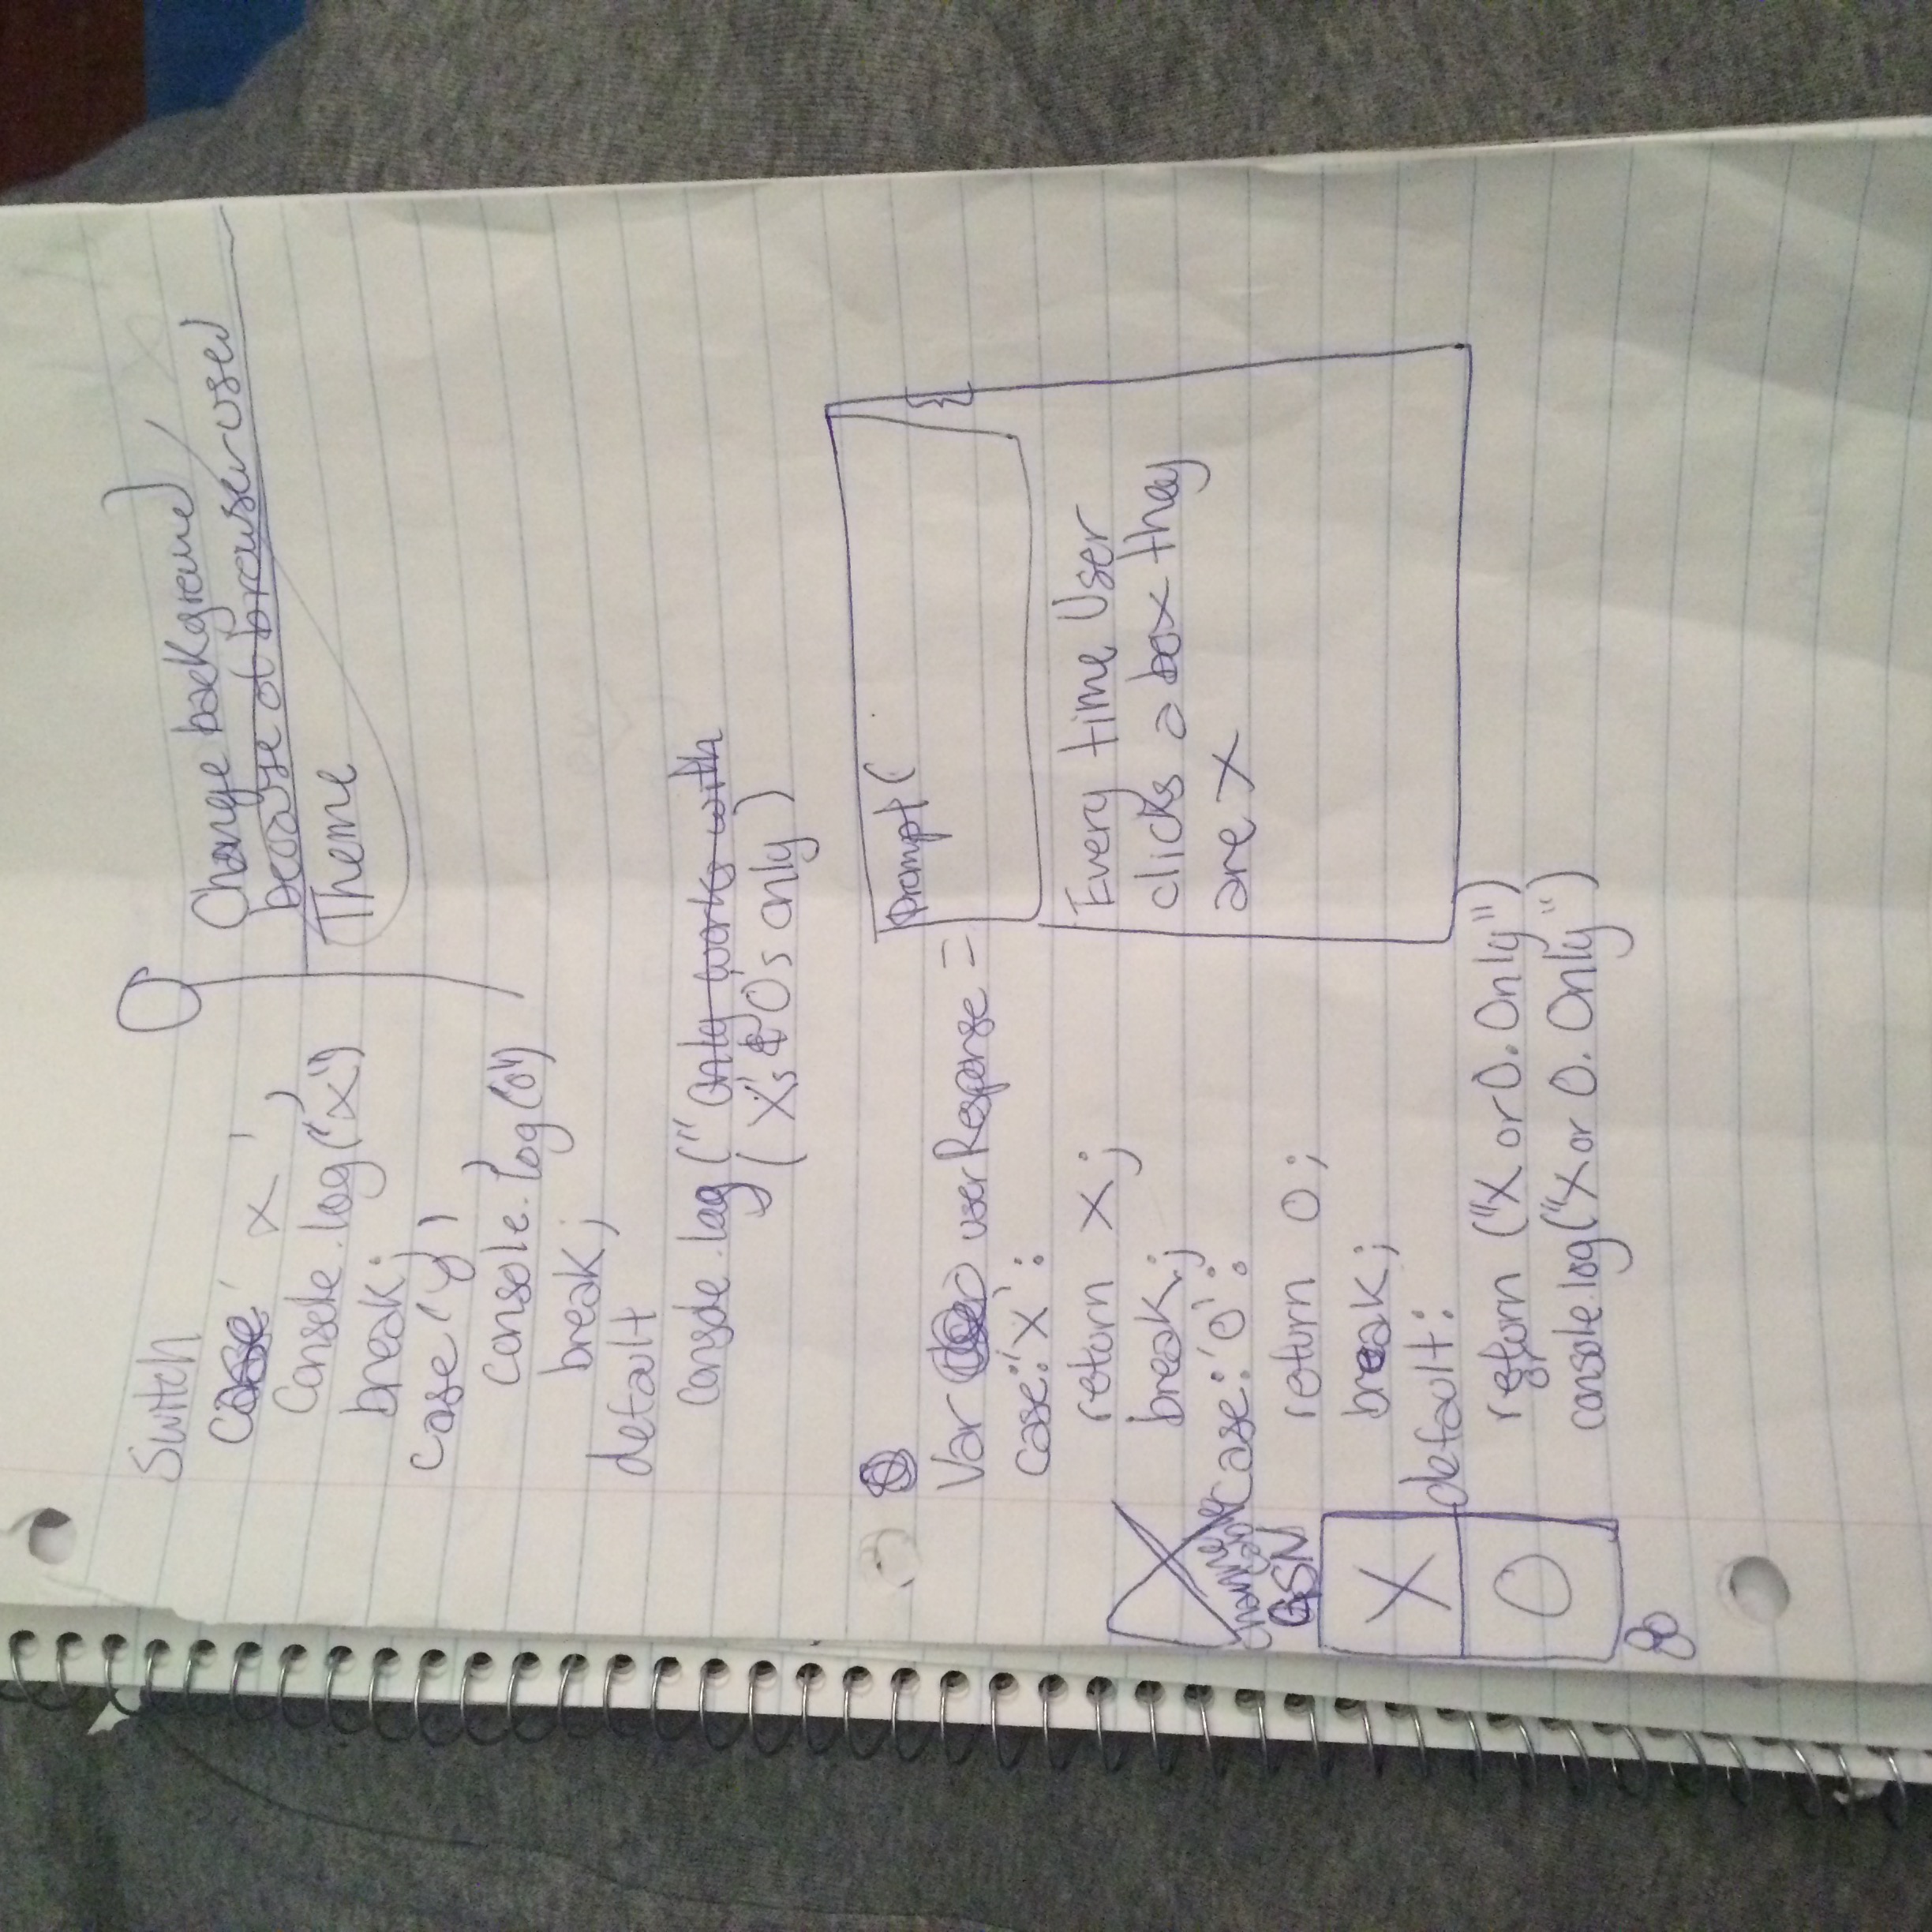 Switch
case ' x ' ,
Console.log("x")
break;
case 'y' ,
console.log("o")
break;
default
console.log ("Only works with
(X's & O's only )
Change background
because of browser used
Theme
Var userResponse = Prompt (
case:'X':
return x;
break;
case:'O':
return o;
break;
default:
return ("X or O. Only")
or
console.log("X or O. Only")
Every time User
clicks a box they
are X
GSN
X
O